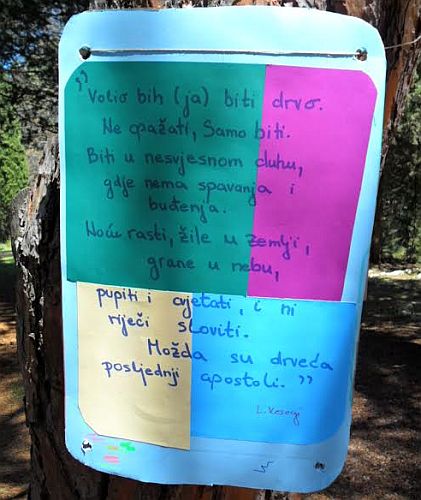 "Volio bih (ja) biti drvo.
Ne opažati, Samo biti.
Biti u nesvjesnom duhu,
gdje nema spavanja i
buđenja.
Noću rasti, žile u zemlji,
grane u nebu,
pupiti i cvjetati, i ni
riječi sloviti.
Možda su drveća
posljednji apostoli."
L.